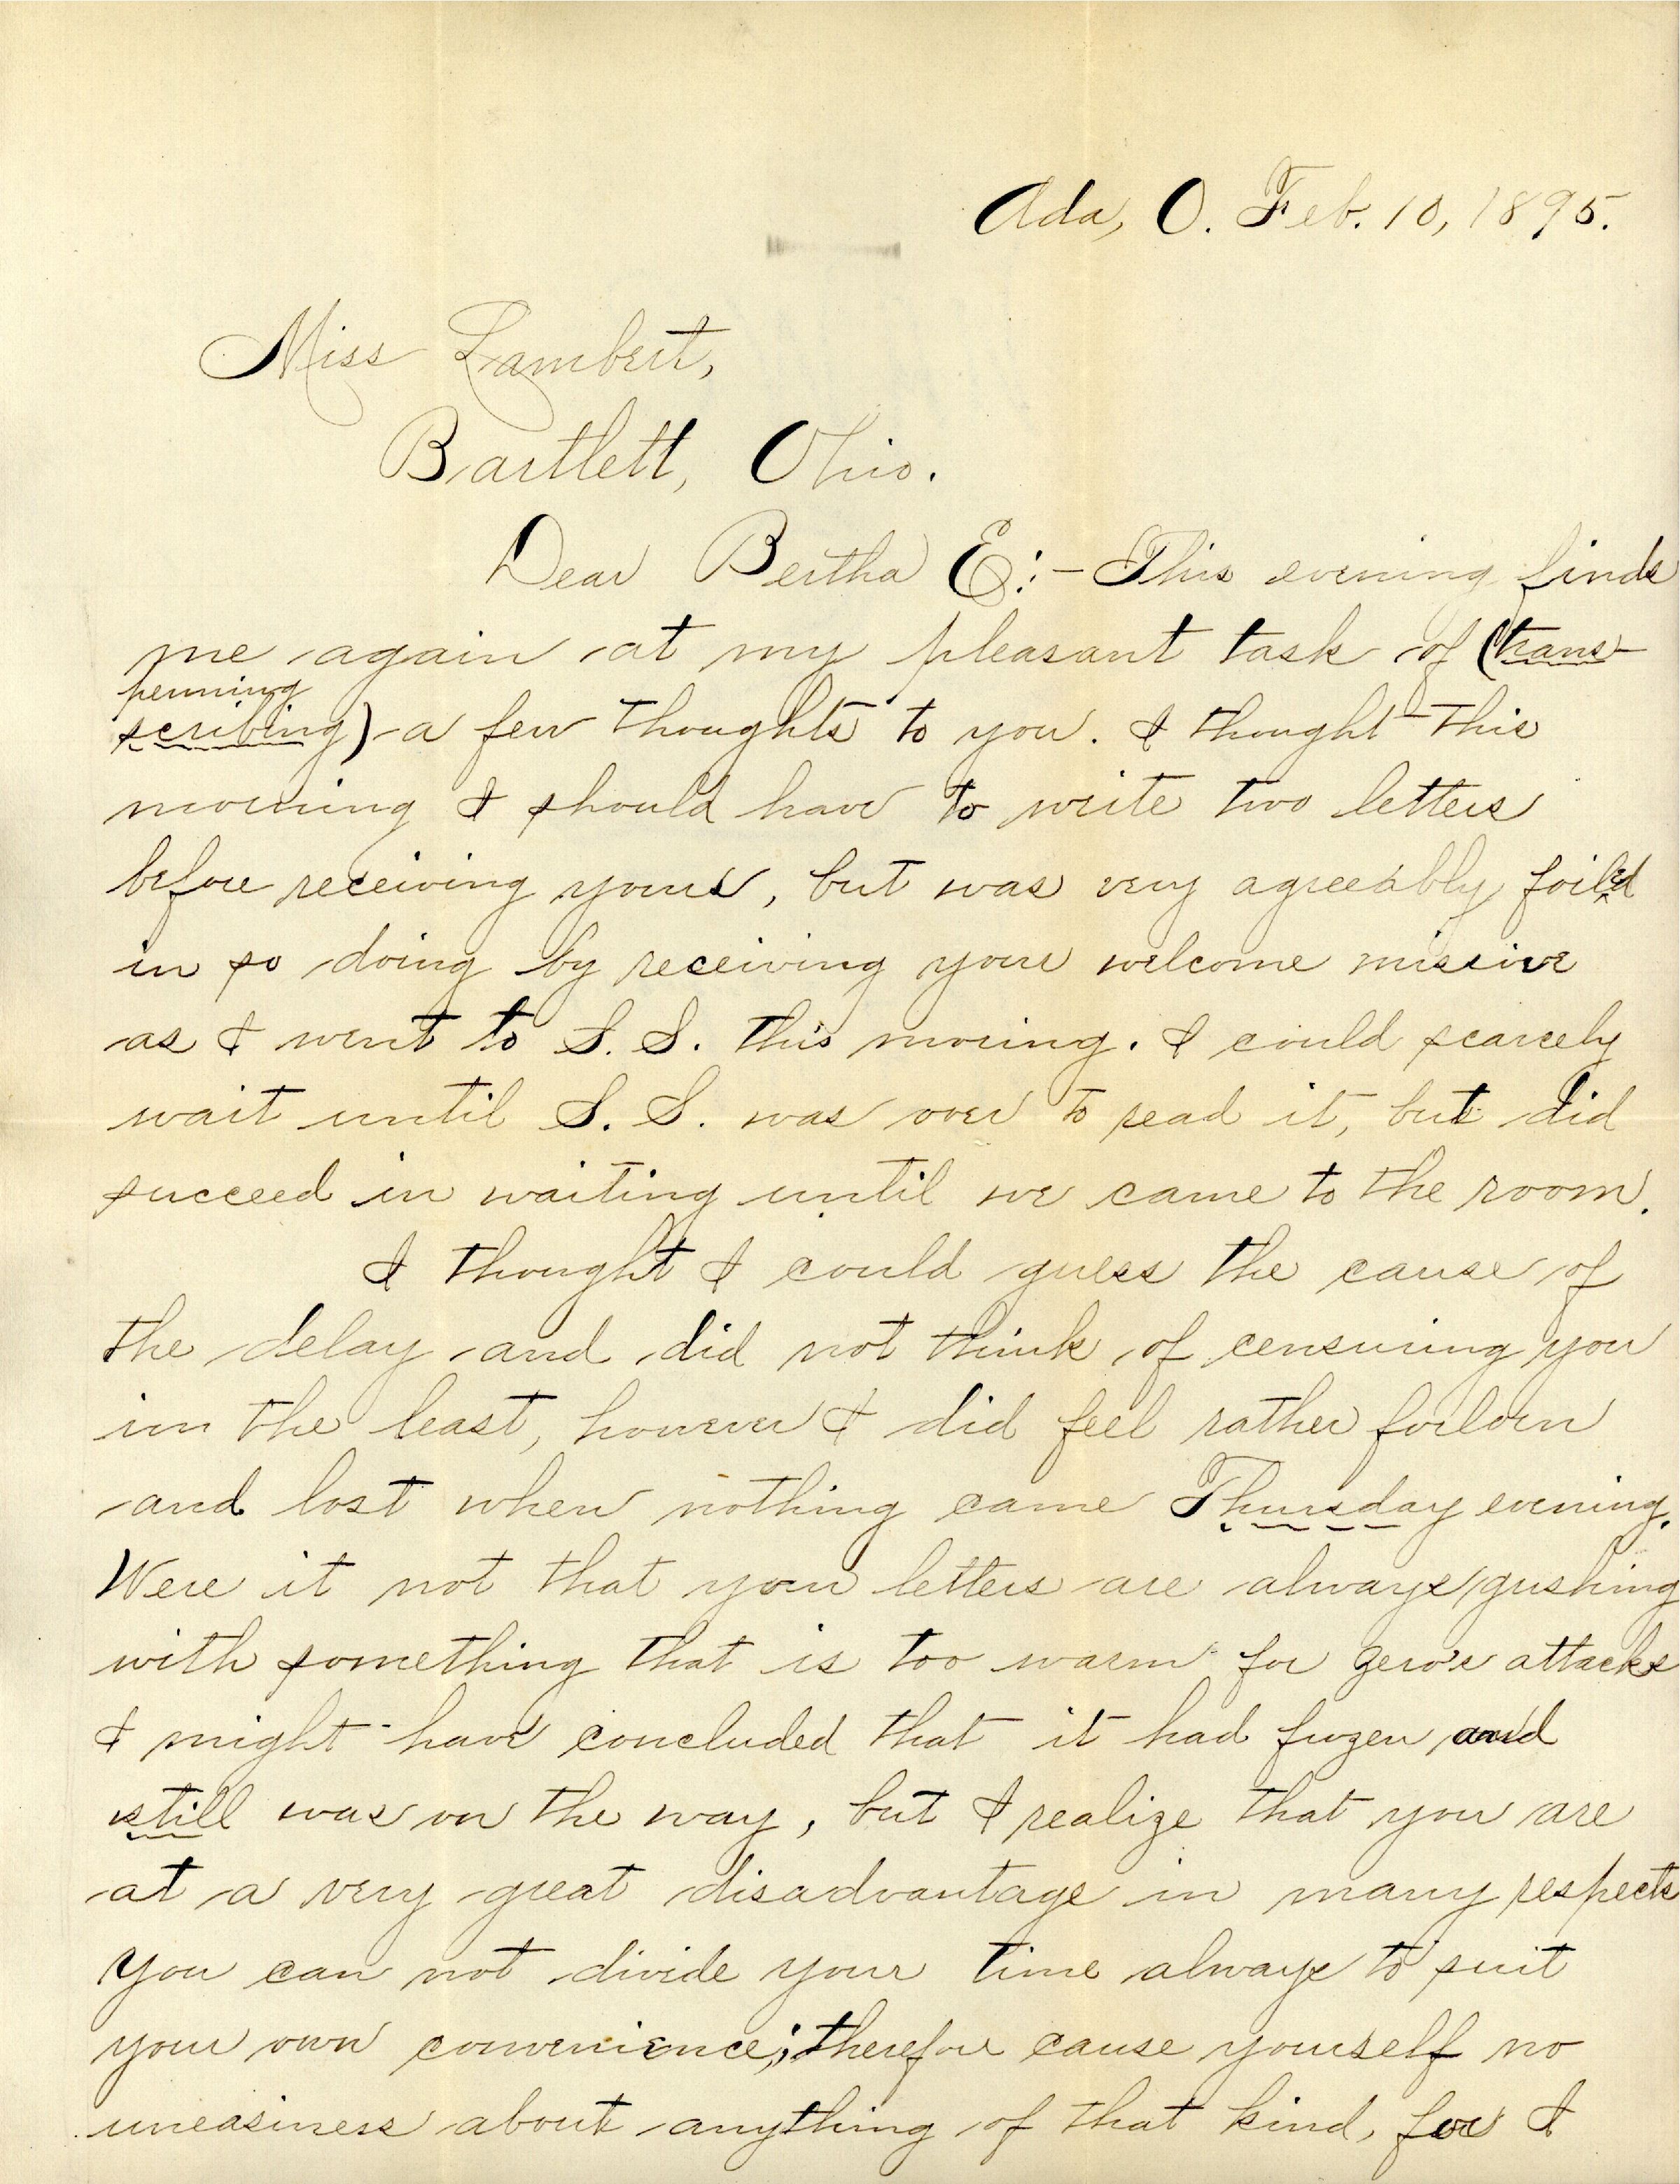 Ada, O. Feb. 10, 1895.
Miss Lambert,
Bartlett, Ohio.
Dear Bertha E:- This evening finds
me again at my pleasant task of (trans-
penning
scribing) a few thoughts to you. I thought this
morning I should have to write two letters
before receiving yours, but was very agreeably foiled
in so doing by receiving your welcome missive
as I went to S. S. this moring. I could scarcely
wait until S. S. was over to read it, but did
succeed in waiting until we came to the room.
I thought I could guess the cause of
the delay and did not think of censuring you
in the least, however I did feel rather forlorn
and lost when nothing came Thursday evening.
Were it not that your letters are always gushing
with something that is too warm for zero's attacks
I might have concluded that it had frozen and
still was on the way, but I realize that you are
at a very great disadvantage in many respects
you can not divide your time always to suit
your own convenience; therefore cause yourself no
uneasiness about anything of that kind, for I